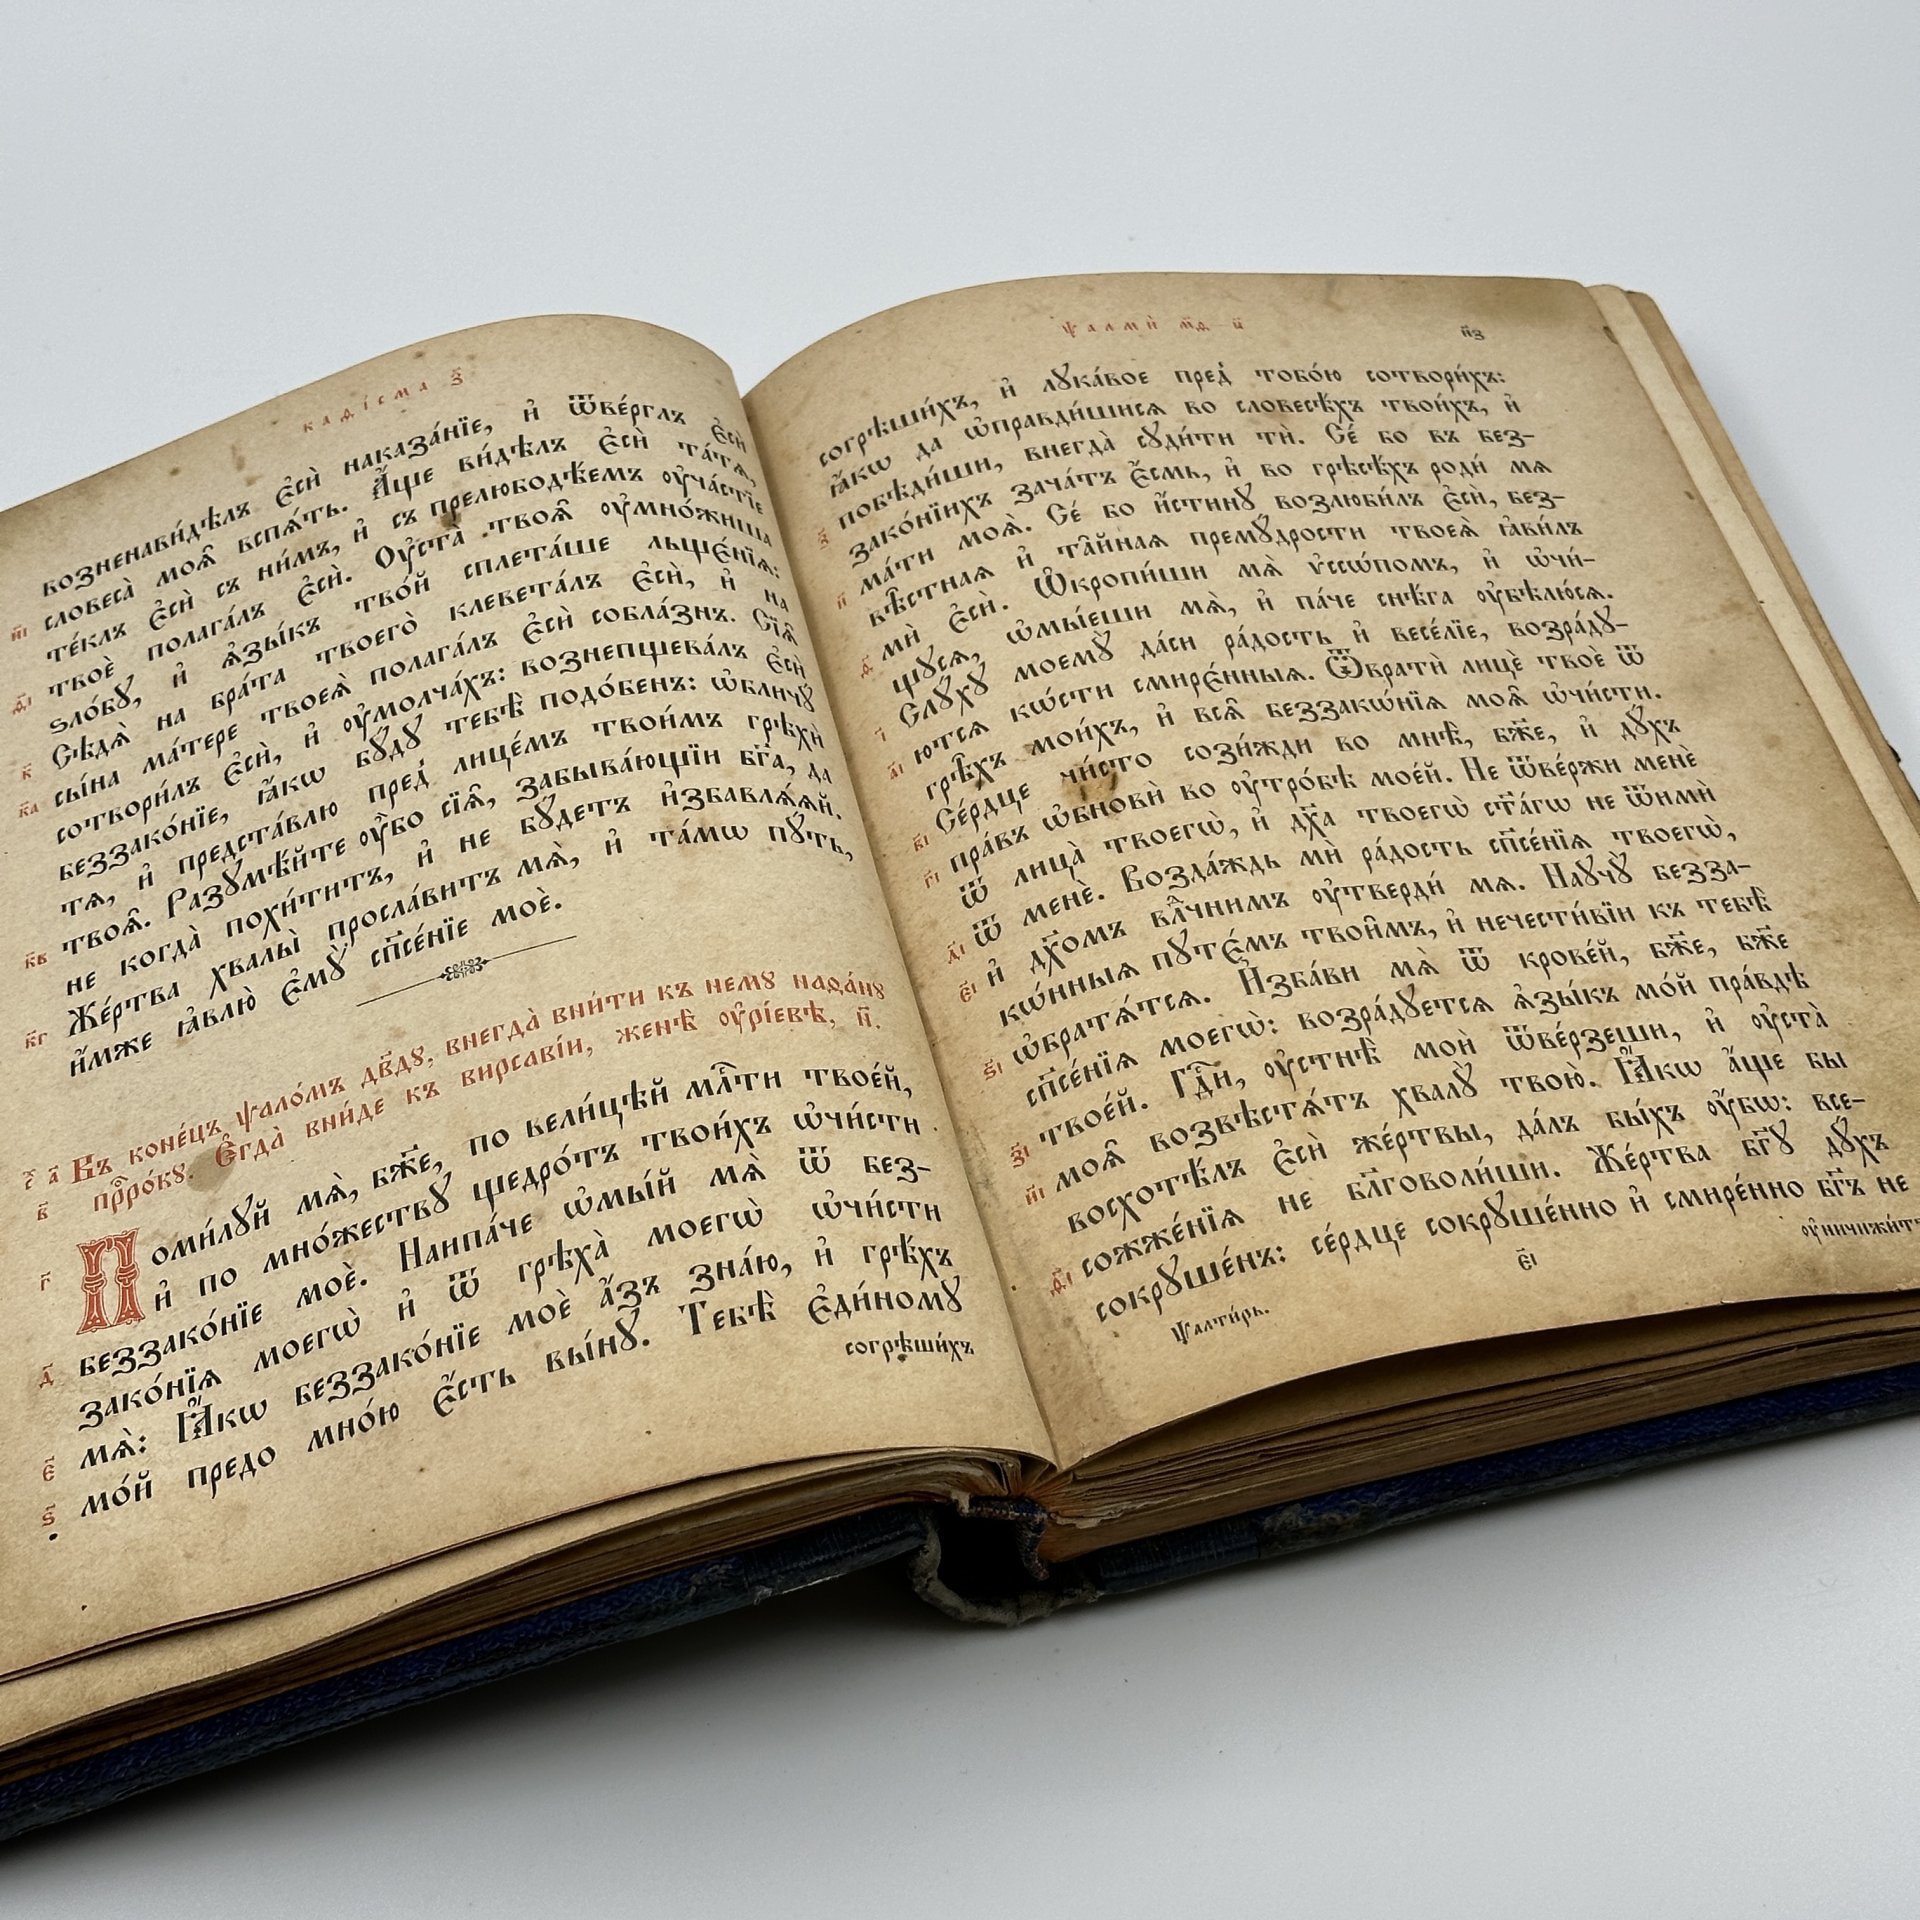 каѳі́сма з҃
возненави́дѣлъ є҆сѝ наказа́нїе, и҆ ѿве́рглъ є҆сѝ
словеса̀ моѧ̑ вспѧ́ть. А҆́ще ви́дѣлъ є҆сѝ та́тѧ,
и҃і те́клъ є҆сѝ съ ни́мъ, и҆ съ прелюбодѣ́емъ ᲂу҆ча́стїе
твоѐ полага́лъ є҆сѝ. Оу҆ста̀ твоѧ̑ ᲂу҆мно́жиша
ѳ҃і ѕло́бꙋ, и҆ ѧ҆зы́къ тво́й сплета́ше льщє́нїѧ:
Сѣдѧ̀ на бра́та твоего̀ клевета́лъ є҆сѝ, и҆ на
к҃ сы́на ма́тере твоеѧ̀ полага́лъ є҆сѝ собла́знъ. Сїѧ̑
к҃а сотвори́лъ є҆сѝ, и҆ ᲂу҆молча́хъ: вознепщева́лъ є҆сѝ
беззако́нїе, ꙗ҆́кѡ бꙋ́дꙋ тебѣ̀ подо́бенъ: ѡ҆бличꙋ́
тѧ, и҆ предста́влю пред̾ лице́мъ твои́мъ грѣхѝ
твоѧ̑. Разꙋмѣ́йте ᲂу҆̀бо сїѧ̑, забыва́ющїи бг҃а, да
к҃в не когда̀ похи́титъ, и҆ не бꙋ́детъ и҆збавлѧ́ѧй.
Же́ртва хвалы̀ просла́витъ мѧ̀, и҆ та́мѡ пꙋ́ть,
к҃г и҆́мже ꙗ҆влю̀ є҆мꙋ̀ сп҃се́нїе моѐ.
н҃ а҃ Въ коне́цъ ѱало́мъ дв҃дꙋ, внегда̀ вни́ти къ немꙋ̀ наѳа́нꙋ
в҃ прⷪ҇ро́кꙋ. Є҆гда̀ вни́де къ вирсаві́и, женѣ̀ ᲂу҆рі́евѣ, н҃.
г҃ Поми́лꙋй мѧ̀, бж҃е, по вели́цѣй млⷭ҇ти твое́й,
и҆ по мно́жествꙋ щедро́тъ твои́хъ ѡ҆чи́сти
беззако́нїе моѐ. Наипа́че ѡ҆мы́й мѧ̀ ѿ без-
д҃ зако́нїѧ моегѡ̀ и҆ ѿ грѣха̀ моегѡ̀ ѡ҆чи́сти
мѧ̀: Ꙗ҆́кѡ беззако́нїе моѐ а҆́зъ зна́ю, и҆ грѣ́хъ
є҃ мо́й предо мно́ю є҆́сть вы́нꙋ. Тебѣ̀ є҆ди́номꙋ
ѕ҃ согрѣши́хъ
ѱалмѝ м҃ѳ — н҃ н҃з
согрѣши́хъ, и҆ лꙋка́вое пред̾ тобо́ю сотвори́хъ:
ꙗ҆́кѡ да ѡ҆правди́шисѧ во словесѣ́хъ твои́хъ, и҆
побѣди́ши, внегда̀ сꙋди́ти тѝ. Се́ бо въ без-
з҃ зако́нїихъ зача́тъ є҆́смь, и҆ во грѣсѣ́хъ роди́ мѧ
ма́ти моѧ̀. Се́ бо и҆́стинꙋ возлюби́лъ є҆сѝ, без-
и҃ вѣ̑стнаѧ и҆ та̑йнаѧ премꙋ́дрости твоеѧ̀ ꙗ҆ви́лъ
мѝ є҆сѝ. Ѡ҆кропи́ши мѧ̀ ѵ҆ссѡ́помъ, и҆ ѡ҆чи́-
ѳ҃ щꙋсѧ, ѡ҆мы́еши мѧ̀, и҆ па́че снѣ́га ᲂу҆бѣлю́сѧ.
Слꙋ́хꙋ моемꙋ̀ да́си ра́дость и҆ весе́лїе, возра́дꙋ-
і҃ ютсѧ кѡ́сти смирє́нныѧ. Ѿвратѝ лицѐ твоѐ ѿ
а҃і грѣ̑хъ мои́хъ, и҆ всѧ̑ беззакѡ́нїѧ моѧ̑ ѡ҆чи́сти.
Се́рдце чи́сто сози́жди во мнѣ̀, бж҃е, и҆ дꙋ́хъ
в҃і пра́въ ѡ҆бновѝ во ᲂу҆тро́бѣ мое́й. Не ѿве́ржи менѐ
г҃і ѿ лица̀ твоегѡ̀, и҆ дх҃а твоегѡ̀ ст҃а́гѡ не ѿимѝ
ѿ менѐ. Возда́ждь мѝ ра́дость сп҃се́нїѧ твоегѡ̀,
д҃і и҆ дх҃омъ влⷣчнимъ ᲂу҆твердѝ мѧ. Наꙋчꙋ̀ безза-
є҃і кѡ́нныѧ пꙋтє́мъ твои̑мъ, и҆ нечести́вїи къ тебѣ̀
ѡ҆братѧ́тсѧ. И҆зба́ви мѧ̀ ѿ крове́й, бж҃е, бж҃е
ѕ҃і сп҃се́нїѧ моегѡ̀: возра́дꙋетсѧ ѧ҆зы́къ мо́й пра́вдѣ
твое́й. Гдⷭ҇и, ᲂу҆стнѣ̀ моѝ ѿве́рзеши, и҆ ᲂу҆ста̀
з҃і моѧ̑ возвѣстѧ́тъ хвалꙋ̀ твою̀. Ꙗ҆́кѡ а҆́ще бы
и҃і восхотѣ́лъ є҆сѝ же́ртвы, да́лъ бы́хъ ᲂу҆́бѡ: все-
сожже́нїѧ не бл҃говоли́ши. Же́ртва бг҃ꙋ дꙋ́хъ
ѳ҃і сокрꙋше́нъ: се́рдце сокрꙋше́нно и҆ смире́нно бг҃ъ не
Ѱалти́рь. є҃і ᲂу҆ничижи́тъ